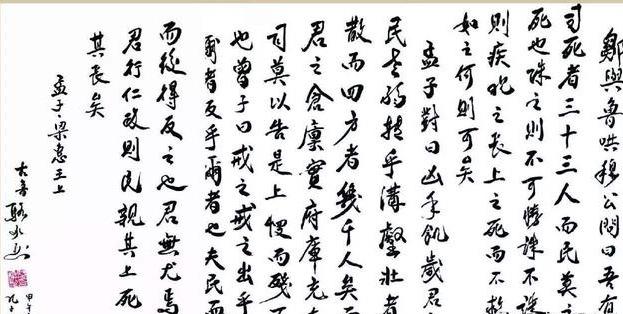 鄒與魯哄穆公問曰吾有
司死者三十三人而民莫之
死也誅之則不可勝誅不誅
則疾視之长上之死而不救
如之何則可矣
孟子對曰凶年飢歲君
民老弱轉乎溝壑壯者
散而四方者幾千人矣而
君之倉廩實府庫充
司莫以告是上慢而殘
也曾子曰戒之戒之出乎
爾者反乎爾者也夫民而
而後得反之也君無尤焉
君行仁政則民親其上死
其長矣
孟子·梁惠王上
甲午